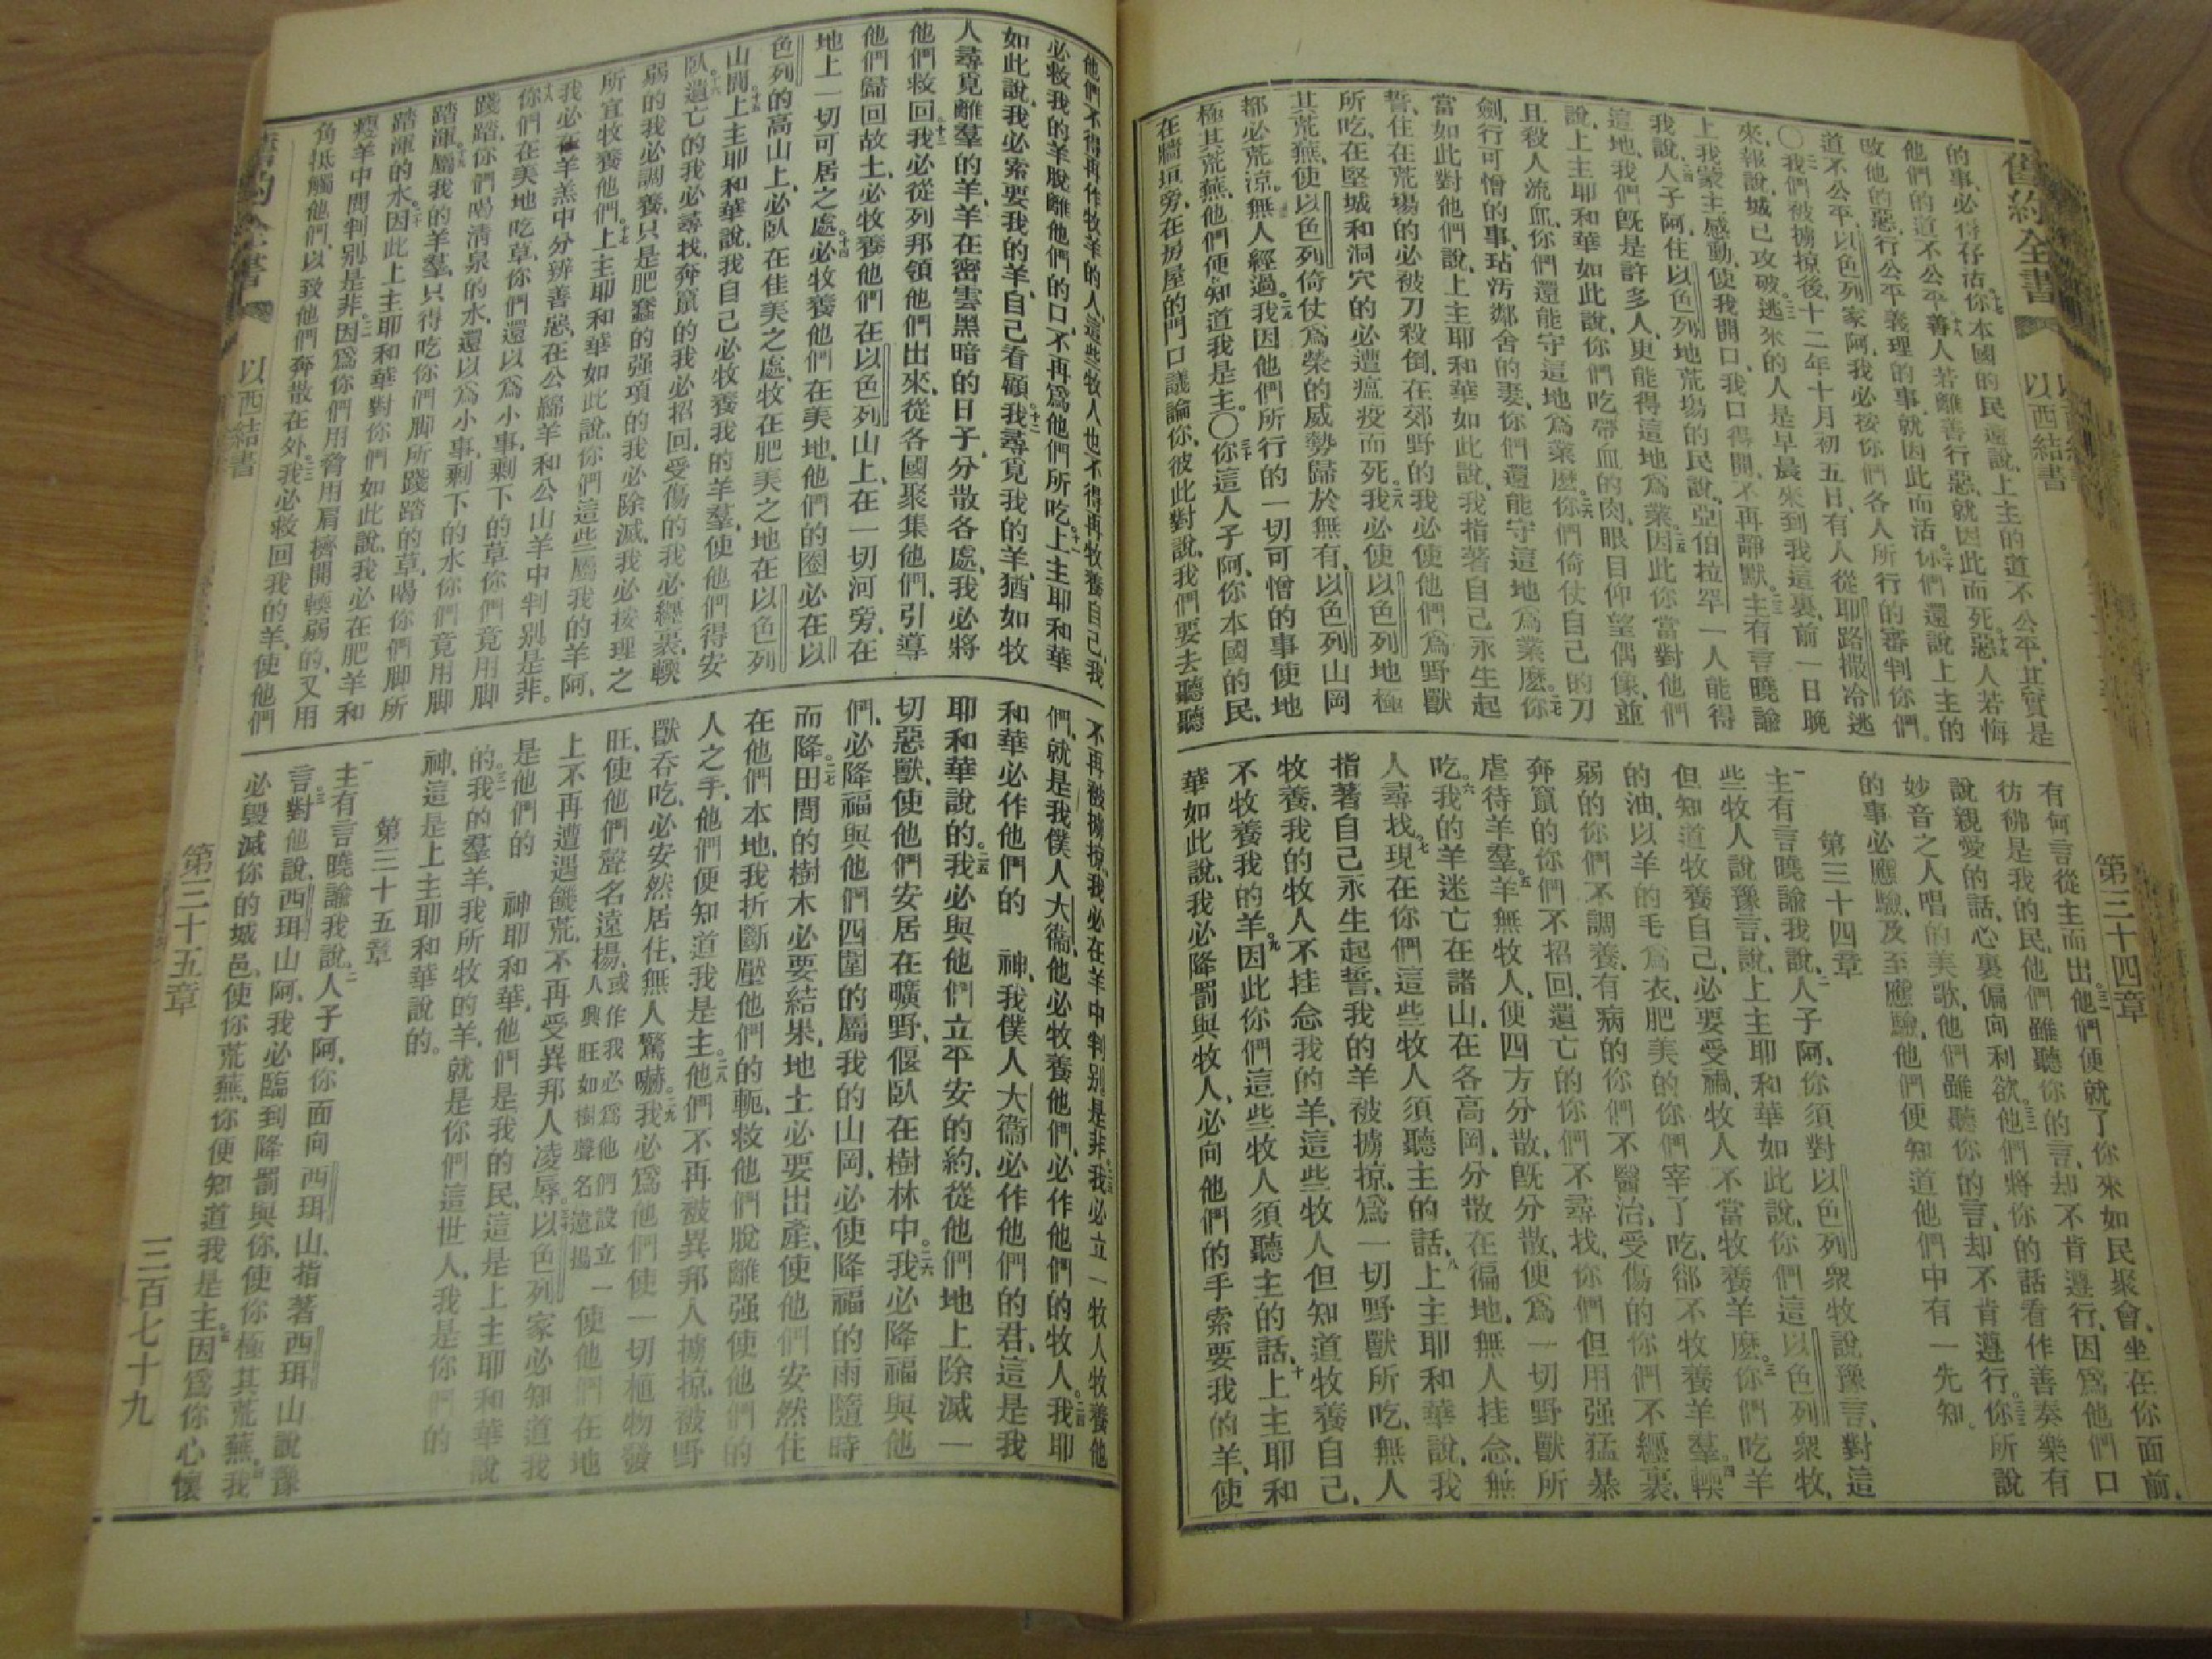 舊約全書
以西結書
第三十四章
的事必得存活你本國的民還說上主的道不公平其實是
他們的道不公平善人若離善行惡就因此而死惡人若悔
改他的惡行公平義理的事就因此而活你們還說上主的
道不公平以色列家阿我必按你們各人所行的審判你們。
〇我們被擄掠後十二年十月初五日有人從耶路撒冷逃
來報說城已攻破逃來的人是早晨來到我這裏前一日晚
上我蒙主感動使我開口我口得開不再靜默主有言曉諭
我說人子阿住以色列地荒場的民說亞伯拉罕一人能得
這地我們既是許多人更能得這地爲業因此你當對他們
說上主耶和華如此說你們吃帶血的肉眼目仰望偶像並
且殺人流血你們還能守這地爲業麽你們倚仗自己的刀
劍行可憎的事玷汚鄰舍的妻你們還能守這地爲業麽你
當如此對他們說上主耶和華如此說我指著自己永生起
誓住在荒場的必被刀殺倒在郊野的我必使他們爲野獸
所吃在堅城和洞穴的必遭瘟疫而死我必使以色列地極
其荒蕪使以色列倚仗爲榮的威勢歸於無有以色列山岡
都必荒涼無人經過我因他們所行的一切可憎的事使地
極其荒蕪他們便知道我是主。〇你這人子阿你本國的民
在牆垣旁在房屋的門口議論你彼此對說我們要去聽聽
有何言從主而出他們便就了你來如民聚會坐在你面前
彷彿是我的民他們雖聽你的言却不肯遵行因爲他們口
說親愛的話心裏偏向利欲他們將你的話看作善奏樂有
妙音之人唱的美歌他們雖聽你的言却不肯遵行你所說
的事必應驗及至應驗他們便知道他們中有一先知。
第三十四章
主有言曉諭我說人子阿你須對以色列衆牧說豫言對這
些牧人說豫言說上主耶和華如此說你們這以色列衆牧
但知道牧養自己必要受禍牧人不當牧養羊麽你們吃羊
的油以羊的毛爲衣肥美的你們宰了吃卻不牧養羊羣輭
弱的你們不調養有病的你們不醫治受傷的你們不纏裹
奔竄的你們不招回遺亡的你們不尋找你們但用强猛暴
虐待羊羣羊無牧人便四方分散既分散便爲一切野獸所
吃我的羊迷亡在諸山在各高岡分散在徧地無人挂念無
人尋找現在你們這些牧人須聽主的話上主耶和華說我
指著自己永生起誓我的羊被擄掠爲一切野獸所吃無人
牧養我的牧人不挂念我的羊這些牧人但知道牧養自己
不牧養我的羊因此你們這些牧人須聽主的話上主耶和
華如此說我必降罰與牧人必向他們的手索要我的羊使
他們不得再作牧羊的人這些牧人也不得再牧養自己我
必救我的羊脫離他們的口不再爲他們所吃上主耶和華
如此說我必索要我的羊自己看顧我尋覓我的羊猶如牧
人尋覓離羣的羊羊在密雲黑暗的日子分散各處我必將
他們救回我必從列邦領他們出來從各國聚集他們引導
他們歸回故土必牧養他們在以色列山上在一切河旁在
地上一切可居之處必牧養他們在美地他們的圈必在以
色列的高山上必臥在佳美之處牧在肥美之地在以色列
山間上主耶和華說我自己必牧養我的羊羣使他們得安
臥遺亡的我必尋找奔竄的我必招回受傷的我必纏裹輭
弱的我必調養只是肥蠢的强項的我必除滅我必按理之
所宜牧養他們上主耶和華如此說你們這些屬我的羊阿
我必在羊羔中分辨善惡在公綿羊和公山羊中判別是非。
你們在美地吃草你們還以爲小事剩下的草你們竟用脚
踐踏你們喝清泉的水還以爲小事剩下的水你們竟用脚
踏渾屬我的羊羣只得吃你們脚所踐踏的草喝你們脚所
踏渾的水因此上主耶和華對你們如此說我必在肥羊和
瘦羊中間判別是非因爲你們用脅用肩擠開輭弱的又用
角抵觸他們以致他們奔散在外我必救回我的羊使他們
不再被擄掠我必在羊中判別是非我必立一牧人牧養他
們就是我僕人大衞他必牧養他們必作他們的牧人我耶
和華必作他們的 神我僕人大衞必作他們的君這是我
耶和華說的我必與他們立平安的約從他們地上除滅一
切惡獸使他們安居在曠野偃臥在樹林中我必降福與他
們必降福與他們四圍的屬我的山岡必使降福的雨隨時
而降田間的樹木必要結果地土必要出產使他們安然住
在他們本地我折斷壓他們的軛救他們脫離强使他們的
人之手他們便知道我是主他們不再被異邦人擄掠被野
獸吞吃必安然居住無人驚嚇我必爲他們使一切植物發
旺使他們聲名遠揚或作我必爲他們設立一人興旺如樹聲名遠揚使他們在地
上不再遭遇饑荒不再受異邦人凌辱以色列家必知道我
是他們的 神耶和華他們是我的民這是上主耶和華說
的我的羣羊我所牧的羊就是你們這世人我是你們的
神這是上主耶和華說的。
第三十五章
主有言曉諭我說人子阿你面向西珥山指著西珥山說豫
言對他說西珥山阿我必臨到降罰與你使你極其荒蕪我
必毀滅你的城邑使你荒蕪你便知道我是主因爲你心懷
以西結書
第三十五章
三百七十九